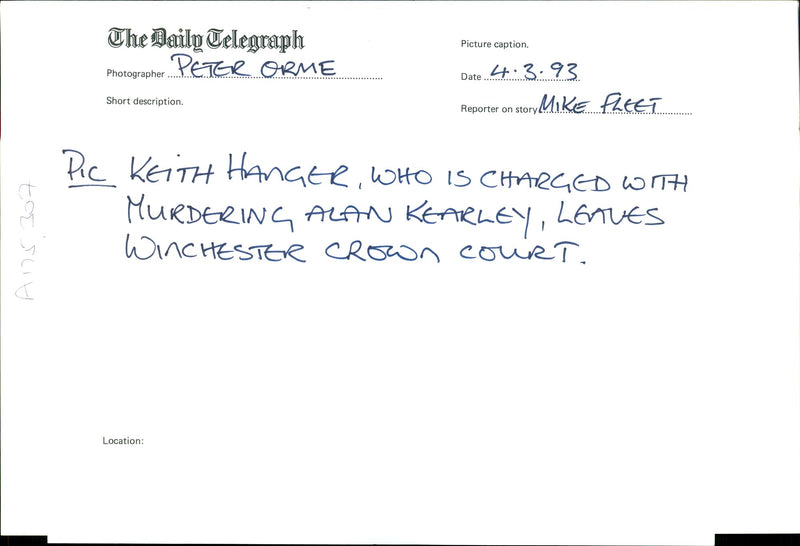 The Daily Telegraph
Picture caption.
Photographer PETER ORME
Date 4.3.93
Short description.
Reporter on story MIKE FLEET
PIC KEITH HANGER, WHO IS CHARGED WITH
MURDERING ALAN KEARLEY, LEAVES
WINCHESTER CROWN COURT.
A175.307
Location: